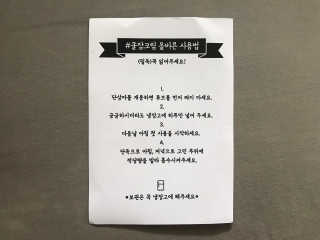 #쿨잠크림 올바른 사용법
(필독)꼭 읽어주세요!
1.
단상자를 개봉하면 튜브를 먼저 빼지 마세요.
2.
궁금하시더라도 냉장고에 하루만 넣어 주세요.
3.
다음날 아침 첫 사용을 시작하세요.
4.
단독으로 아침, 저녁으로 고민 부위에
적당량을 발라 흡수시켜주세요.
*보관은 꼭 냉장고에 해주세요*